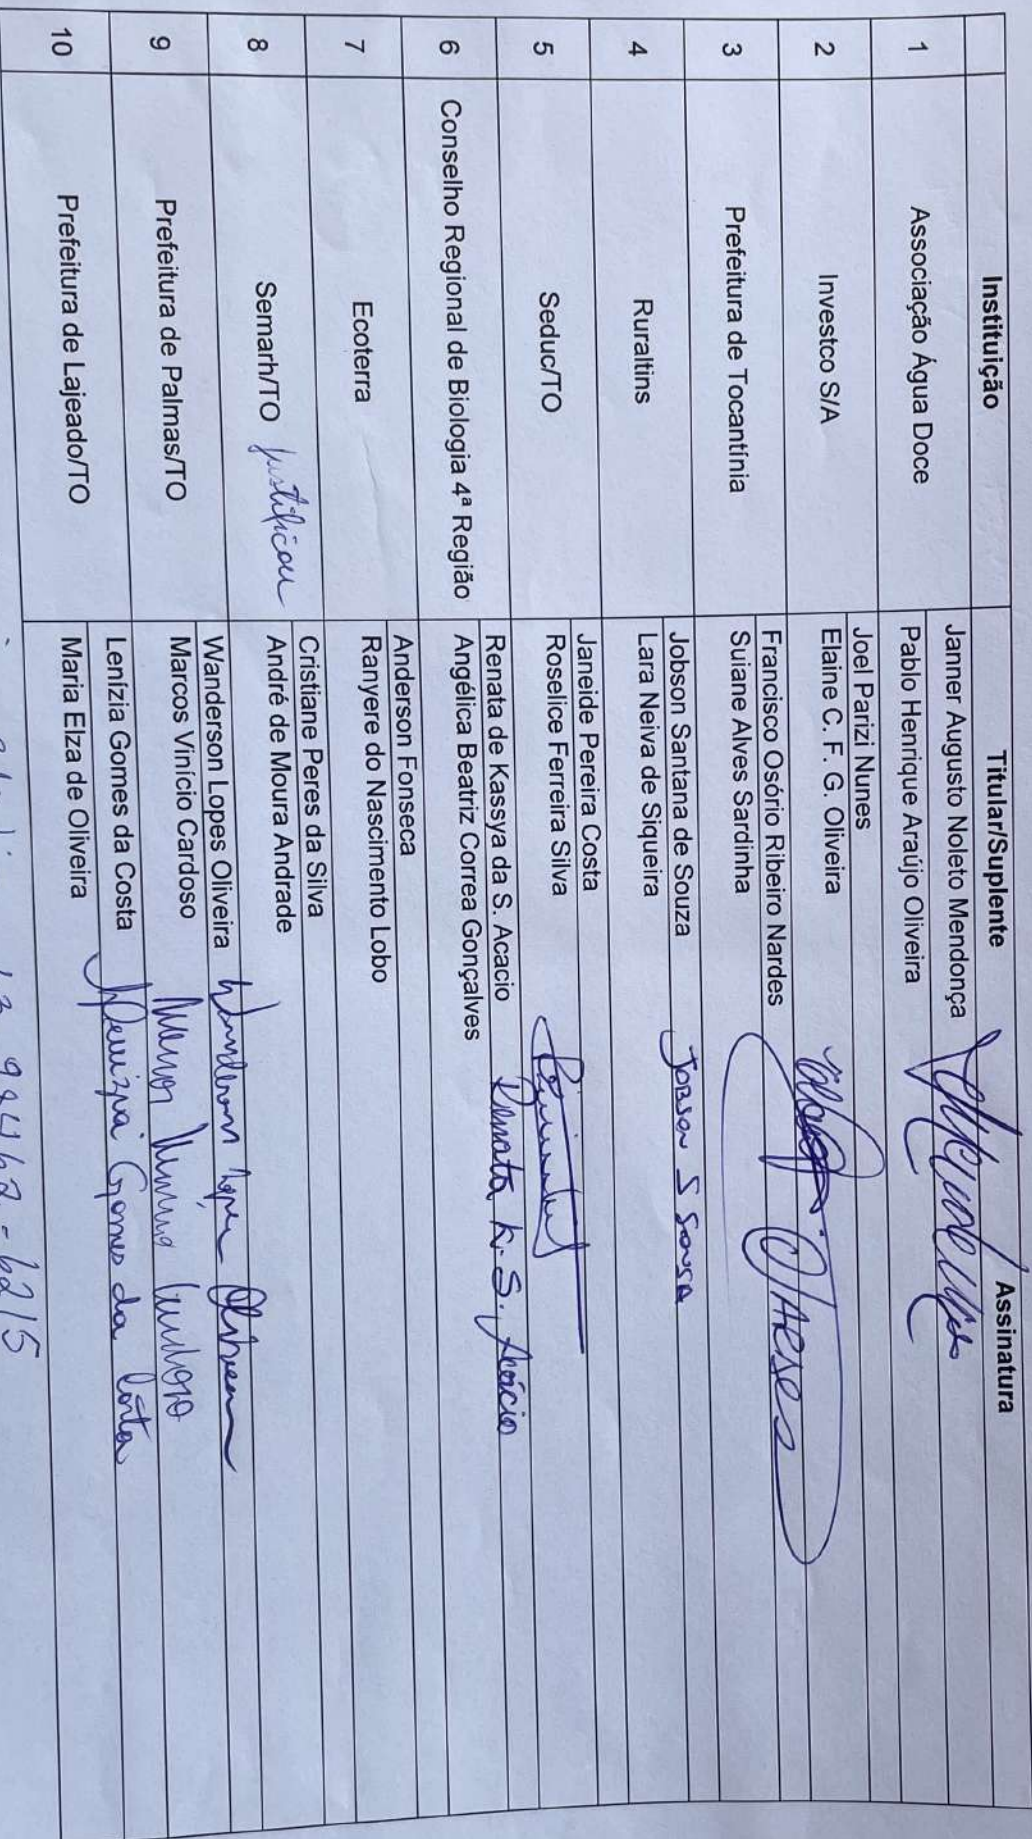 Instituição Titular/Suplente Assinatura
1 Associação Água Doce
Janner Augusto Noleto Mendonça
Pablo Henrique Araújo Oliveira
2 Investco S/A
Joel Parizi Nunes
Elaine C. F. G. Oliveira
3 Prefeitura de Tocantínia
Francisco Osório Ribeiro Nardes
Suiane Alves Sardinha
4 Ruraltins
Jobson Santana de Souza Jobson S Sousa
Lara Neiva de Siqueira
5 Seduc/TO
Janeide Pereira Costa
Roselice Ferreira Silva
6 Conselho Regional de Biologia 4ª Região
Renata de Kassya da S. Acacio Renata K. S. Acácio
Angélica Beatriz Correa Gonçalves
7 Ecoterra
Anderson Fonseca
Ranyere do Nascimento Lobo
8 Semarh/TO justificou
Cristiane Peres da Silva
André de Moura Andrade
9 Prefeitura de Palmas/TO
Wanderson Lopes Oliveira Wanderson Lopes Oliveira
Marcos Vinício Cardoso
10 Prefeitura de Lajeado/TO
Lenízia Gomes da Costa Lenizia Gomes da Costa
Maria Elza de Oliveira